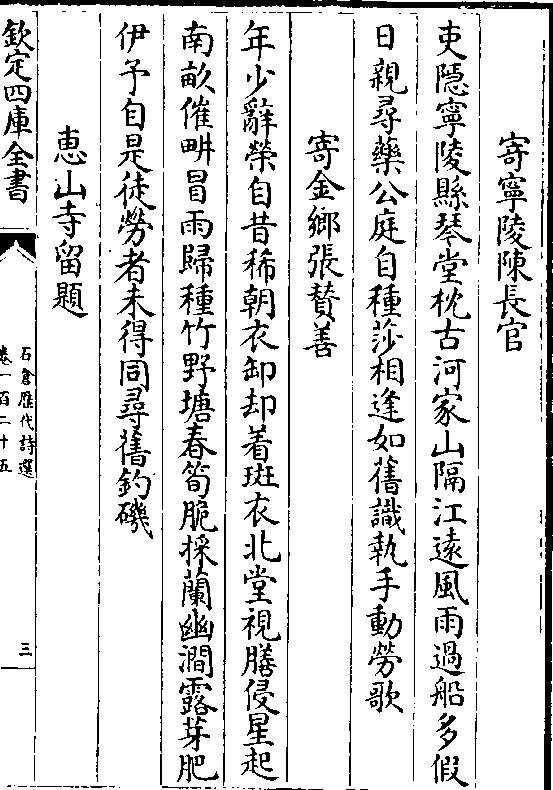 寄寧陵陳長官
吏隱寧陵縣琴堂枕古河家山隔江遠風雨過船多假
日親尋藥公庭自種莎相逢如舊識執手動勞歌
寄金鄉張賛善
年少辭榮自昔稀朝衣卸却着斑衣北堂視膳侵星起
南畝催畊冒雨歸種竹野塘春筍脆採蘭幽澗露芽肥
伊予自是徒勞者未得同尋舊釣磯
惠山寺留題
欽定四庫全書
石倉歷代詩選
卷一百二十五
三